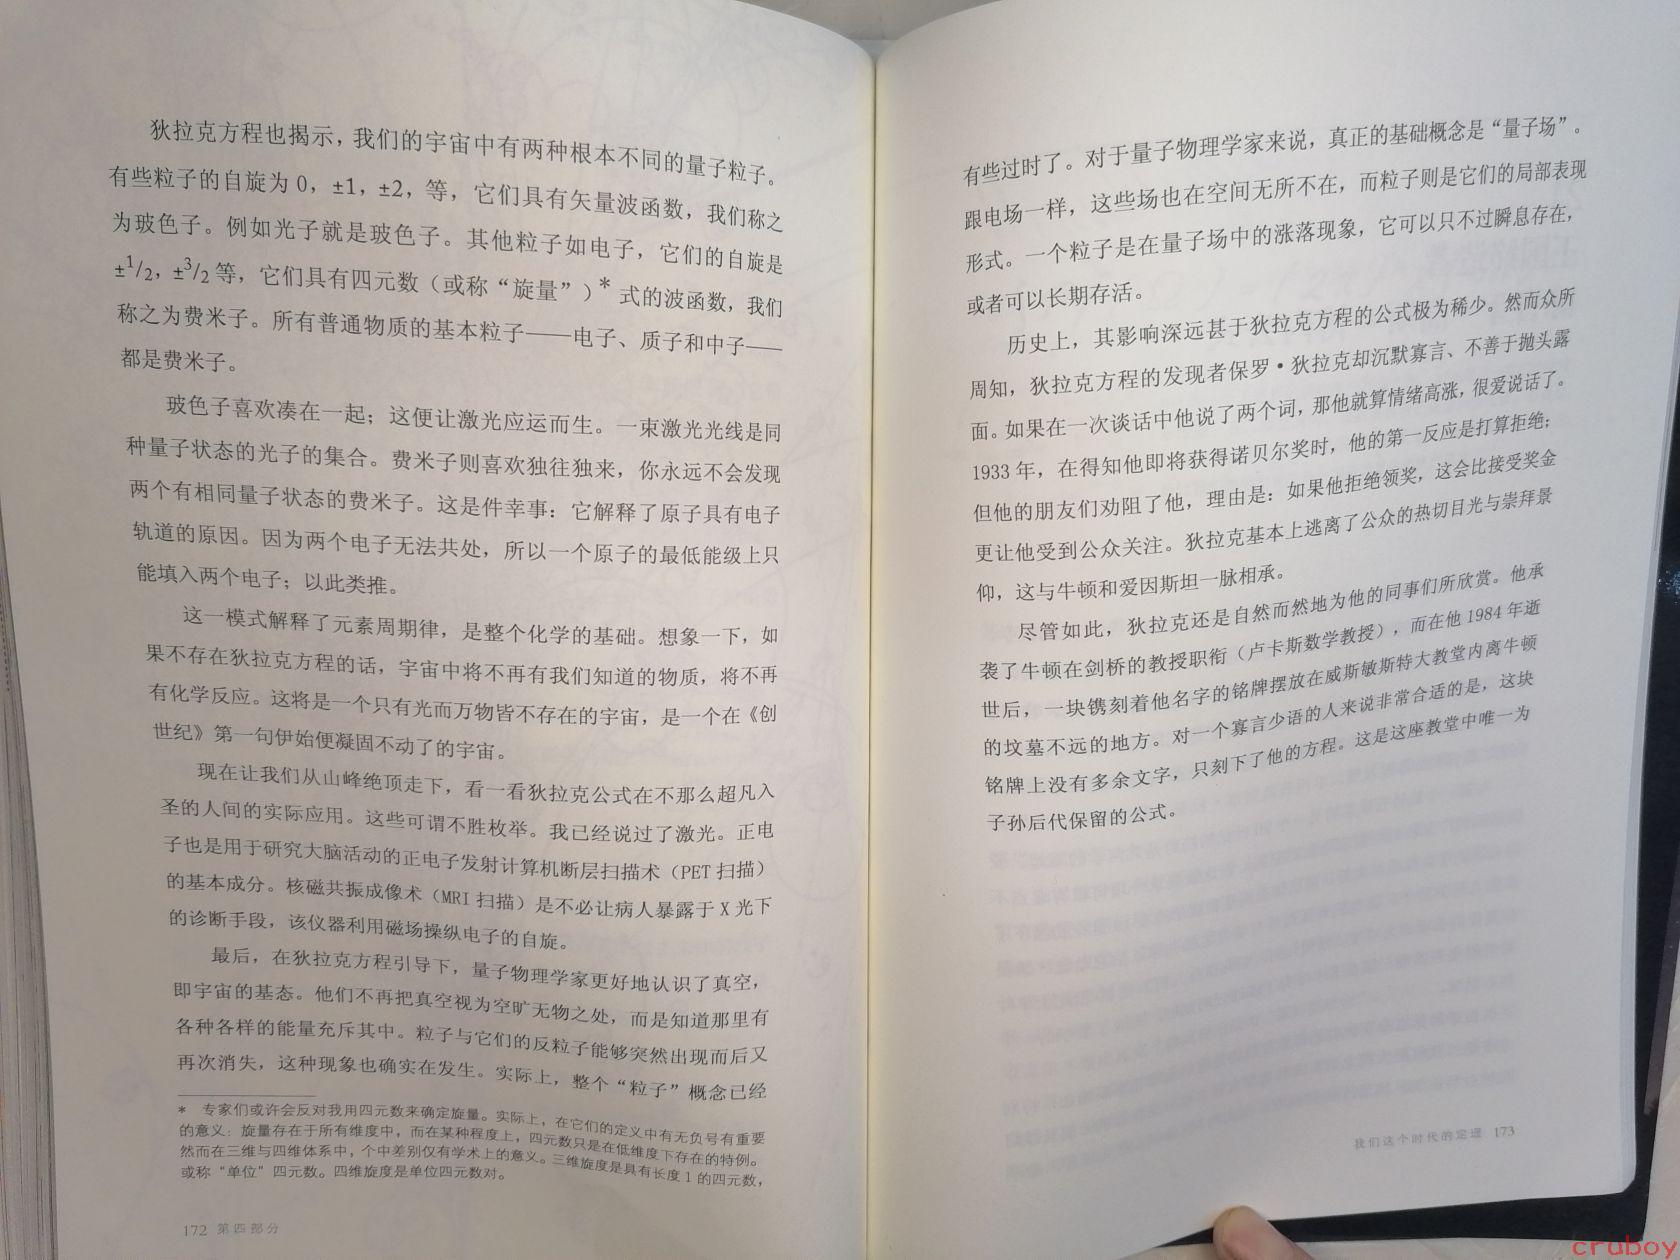 狄拉克方程也揭示，我们的宇宙中有两种根本不同的量子粒子。
有些粒子的自旋为 0，±1，±2，等，它们具有矢量波函数，我们称之
为玻色子。例如光子就是玻色子。其他粒子如电子，它们的自旋是
±1/2，±3/2 等，它们具有四元数（或称“旋量”）* 式的波函数，我们
称之为费米子。所有普通物质的基本粒子——电子、质子和中子——
都是费米子。
玻色子喜欢凑在一起；这便让激光应运而生。一束激光光线是同
种量子状态的光子的集合。费米子则喜欢独往独来，你永远不会发现
两个有相同量子状态的费米子。这是件幸事：它解释了原子具有电子
轨道的原因。因为两个电子无法共处，所以一个原子的最低能级上只
能填入两个电子；以此类推。
这一模式解释了元素周期律，是整个化学的基础。想象一下，如
果不存在狄拉克方程的话，宇宙中将不再有我们知道的物质，将不再
有化学反应。这将是一个只有光而万物皆不存在的宇宙，是一个在《创
世纪》第一句伊始便凝固不动了的宇宙。
现在让我们从山峰绝顶走下，看一看狄拉克公式在不那么超凡入
圣的人间的实际应用。这些可谓不胜枚举。我已经说过了激光。正电
子也是用于研究大脑活动的正电子发射计算机断层扫描术（PET 扫描）
的基本成分。核磁共振成像术（MRI 扫描）是不必让病人暴露于 X 光下
的诊断手段，该仪器利用磁场操纵电子的自旋。
最后，在狄拉克方程引导下，量子物理学家更好地认识了真空，
即宇宙的基态。他们不再把真空视为空旷无物之处，而是知道那里有
各种各样的能量充斥其中。粒子与它们的反粒子能够突然出现而后又
再次消失，这种现象也确实在发生。实际上，整个“粒子”概念已经
* 专家们或许会反对我用四元数来确定旋量。实际上，在它们的定义中有无负号有重要
的意义：旋量存在于所有维度中，而在某种程度上，四元数只是在低维度下存在的特例。
然而在三维与四维体系中，个中差别仅有学术上的意义。三维旋度是具有长度 1 的四元数，
或称“单位”四元数。四维旋度是单位四元数对。
172 第四部分
有些过时了。对于量子物理学家来说，真正的基础概念是“量子场”。
跟电场一样，这些场也在空间无所不在，而粒子则是它们的局部表现
形式。一个粒子是在量子场中的涨落现象，它可以只不过瞬息存在，
或者可以长期存活。
历史上，其影响深远甚于狄拉克方程的公式极为稀少。然而众所
周知，狄拉克方程的发现者保罗·狄拉克却沉默寡言、不善于抛头露
面。如果在一次谈话中他说了两个词，那他就算情绪高涨，很爱说话了。
1933 年，在得知他即将获得诺贝尔奖时，他的第一反应是打算拒绝；
但他的朋友们劝阻了他，理由是：如果他拒绝领奖，这会比接受奖金
更让他受到公众关注。狄拉克基本上逃离了公众的热切目光与崇拜景
仰，这与牛顿和爱因斯坦一脉相承。
尽管如此，狄拉克还是自然而然地为他的同事们所欣赏。他承
袭了牛顿在剑桥的教授职衔（卢卡斯数学教授），而在他 1984 年逝
世后，一块镌刻着他名字的铭牌摆放在威斯敏斯特大教堂内离牛顿
的坟墓不远的地方。对一个寡言少语的人来说非常合适的是，这块
铭牌上没有多余文字，只刻下了他的方程。这是这座教堂中唯一为
子孙后代保留的公式。
我们这个时代的定理 173
cruboy